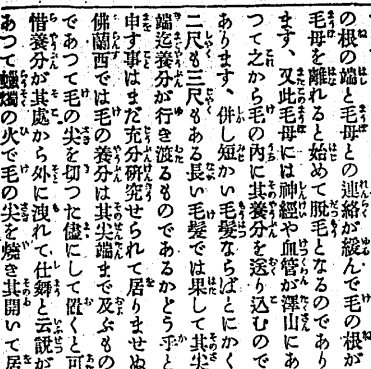 の根の端と毛母との連絡が緩んで毛の根が
毛母を離れると始めて脱毛となるのであり
ます、又此毛母には神經や血管が澤山にあ
つて之から毛の内に其養分を送り込むので
あります、併し短かい毛髮ならばとにかく
二尺も三尺もある長い毛髮では果して其尖
端迄養分が行き渡るものであるかどう乎と
申す事はまだ充分研究せられて居りませぬ
佛蘭西では毛の養分は其尖端まで及ぶもの
であつて毛の尖を切つた儘にして置くと可
惜養分が其處から外に洩れて仕舞と云説が
あつて蠟燭の火で毛の尖を燒き其開いて居